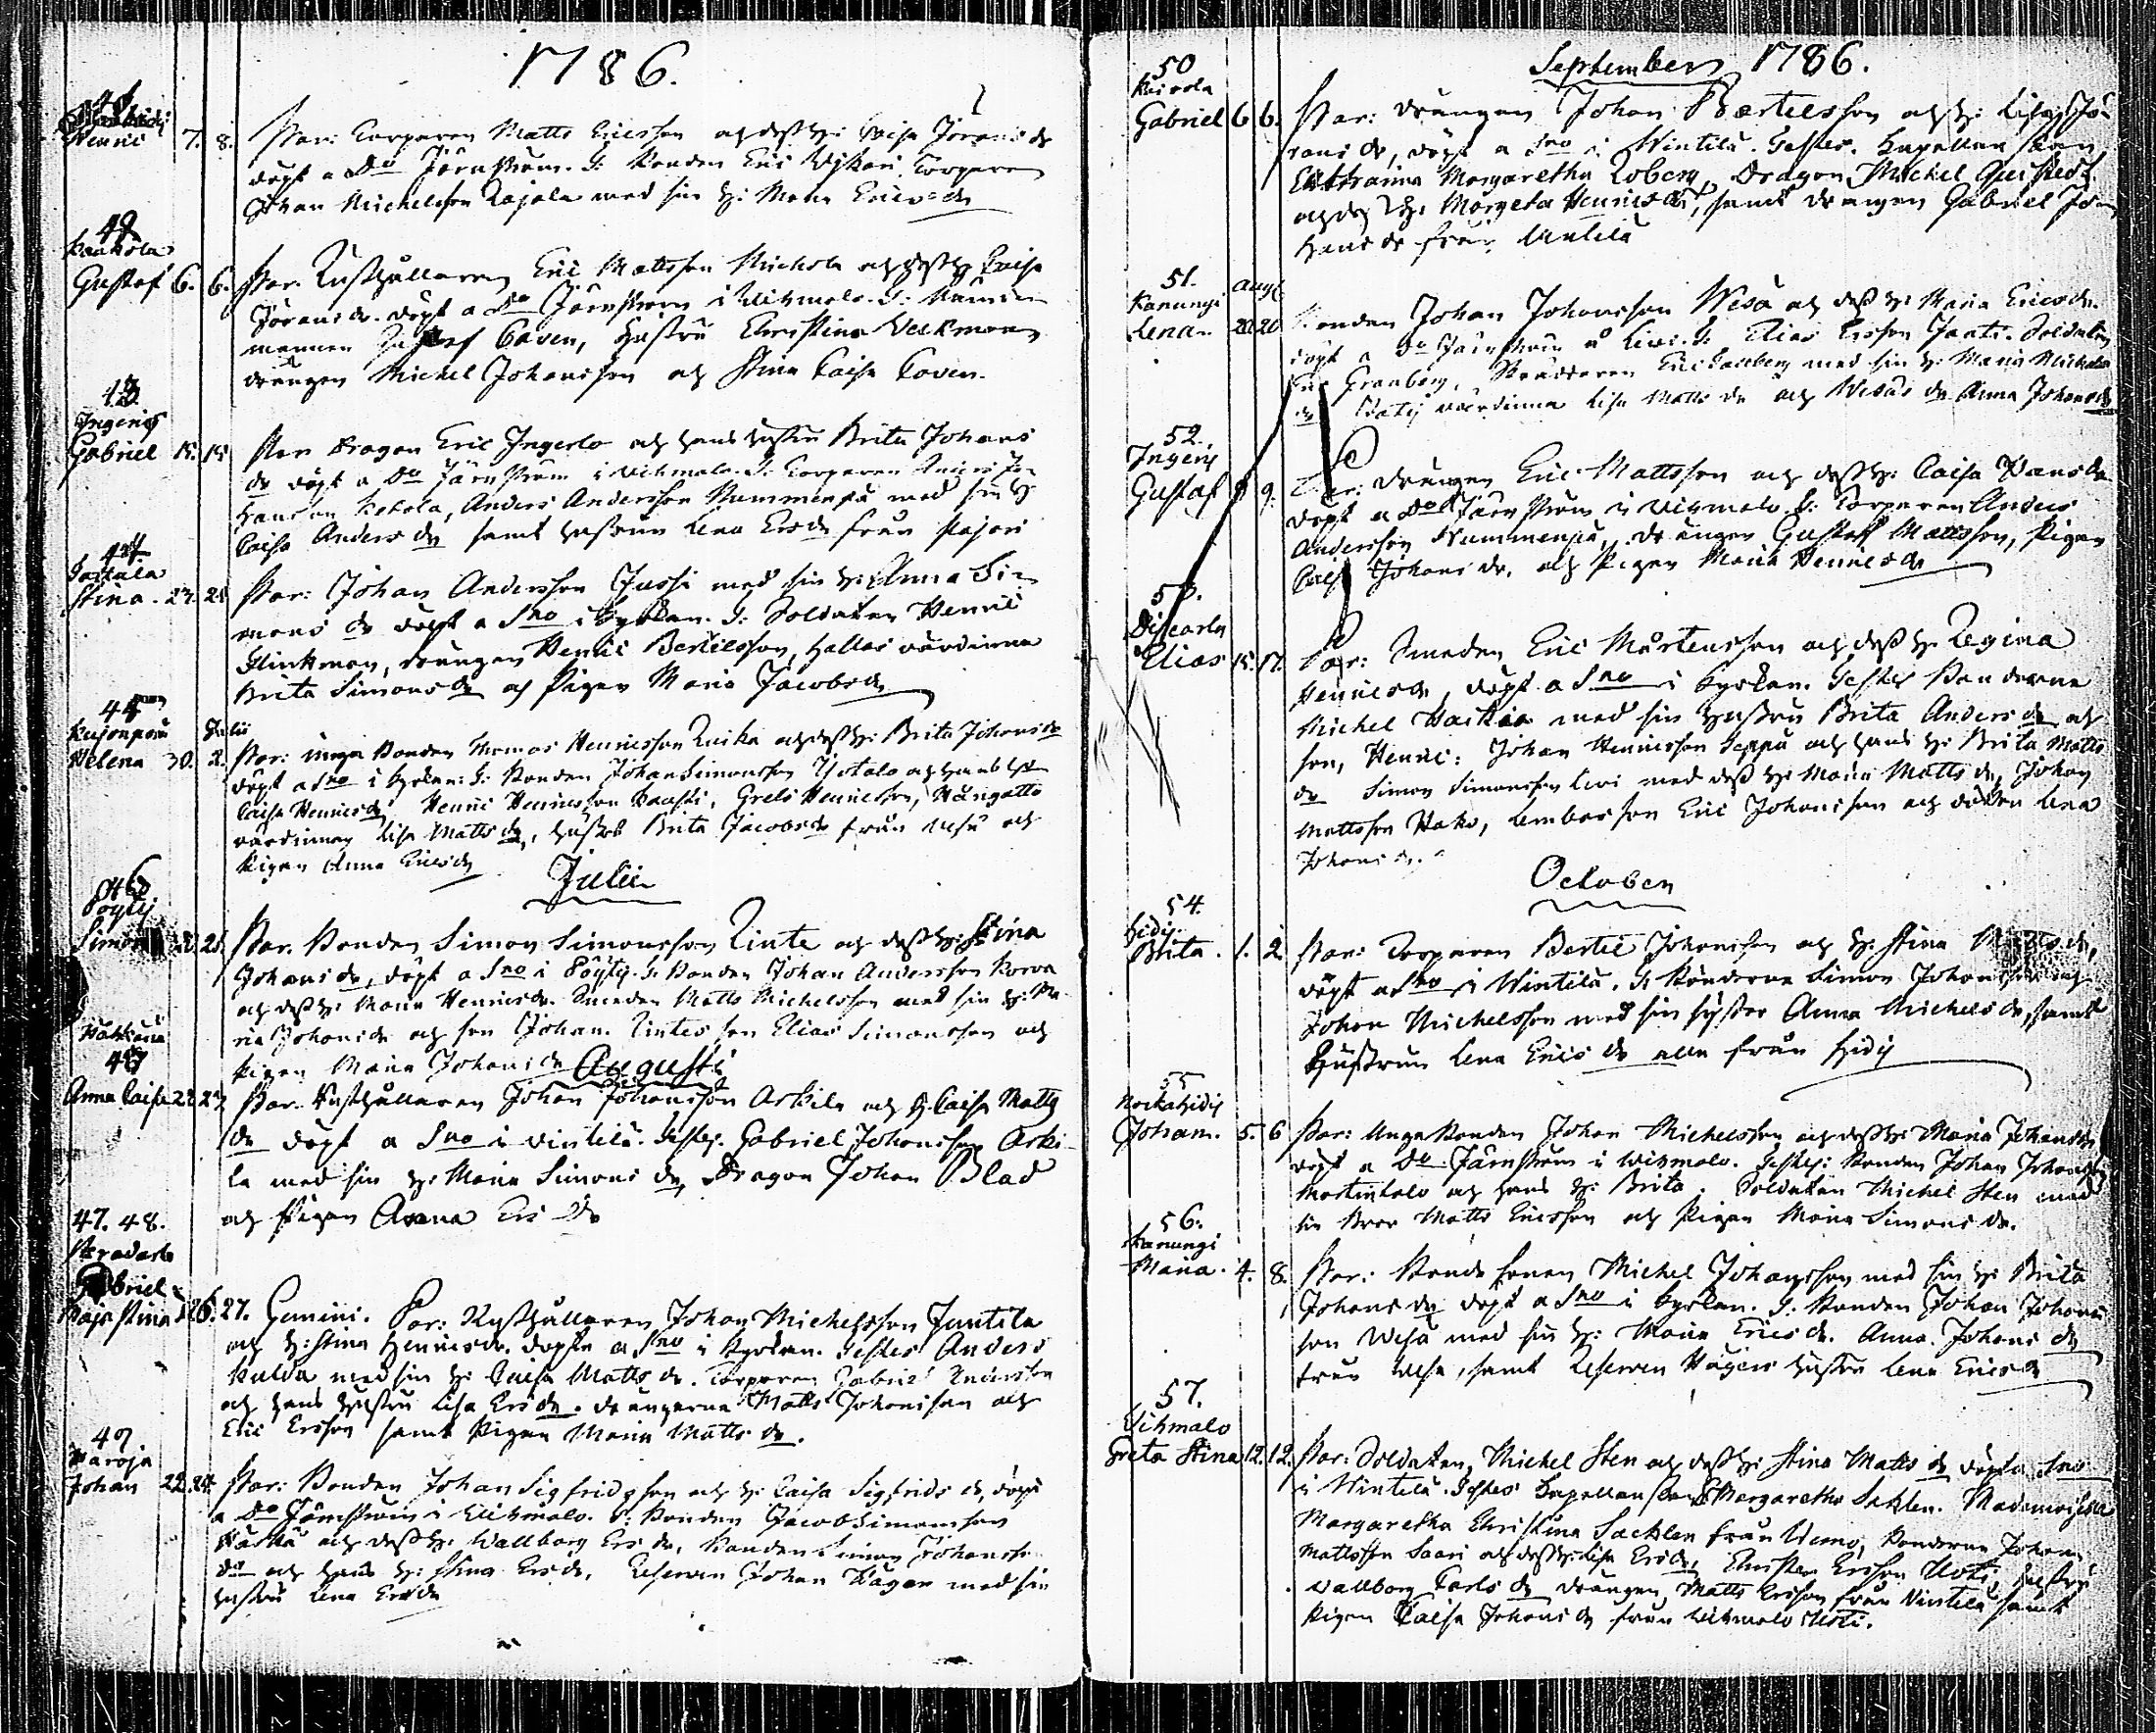 1786.
41
Henric 7. 8. Par: Torparen Matts Ericsson och dess h: Caisa Jörans dr
döpt a Do Järnström. T: Bonden Eric Torparen
Johan Michelsson Rajala med sin h: Maria Erics dr
42
Kaukola
Gustaf 6. 6. Par. Rusthållaren Eric Mattsson Michola och dess h: Caisa
Jörans dr. döpt a Do Järnström i Wihmalo. T:
mannen Caven, hustru Christina Weckman
drängen Michel Johansson och Stina Caisa Caven.
43
Ingeris
Gabriel 15. 15 Par Dragon Eric Ingerlo och hans hustru Brita Johans
dr döpt a Do Järnström i Vihmalo. T: Torparen Anders Jo-
hansson Ketola, Anders Andersson Nummenpä med sin h
Caisa Anders dr samt hustrun Lena Ers dr från Pajari
44
Juttula
Stina. 24. 25 Par: Johan Andersson Jussi med sin h: Anna Si-
mons dr döpt a Sno i kyrkan. T: Soldaten Henric
Glinkman, drängen Henric Bertilsson, Hallas värdinna
Brita Simons dr och Pigan Maria Jacobs dr
45
Julii
Helena 30. 2. Par: unga Bonden Thomas Henricsson Knika och dess h: Brita Johans dr
döpt a Sno i kyrkan: T: Bonden Johan Simonsson Ylotalo och hans h
Caisa Henrics dr, Henric Henricsson Pauski, Grels Henricsson, Hängatts
värdinnan Lisa Matts dr, hustru Brita Jacobs dr från och
Pigan Anna Erics dr
Julii
46
Pöyty
Simon 25. Par. Bonden Simon Simonsson Rinte och dess h: Stina
Johans dr, döpt a Sno i Pöyty. T: Bonden Johan Andersson Korva
och dess h: Maria Henrics dr. Smeden Matts Michelsson med sin h: Ma-
ria Johans dr och son Johan. Rintes son Elias Simonsson och
Pigan Maria Johans dr
Augusti
47
Anna Caisa 22 23 Par. Rusthållaren Johan Johansson Arkila och h. Caisa Matts
dr döpt a Sno i Vintilä. Testes. Gabriel Johansson Arki-
la med sin h: Maria Simons dr, Dragon Johan Blad
och Pigan Anna Ers dr
47. 48.
Gabriel
Caja Stina 26. 27. Gemini. Par: Rusthållaren Johan Michelsson Juntila
och h: Stina Henrics dr. döpte a Sno i Kyrkan. Testes Anders
Kulda med sin h: Caisa Matts dr. Torparen Gabriel Andersson
och hans hustru Lisa Ers dr. drängarna Matts Johansson och
Eric Ersson samt Pigan Maria Matts dr.
49.
Waroja
Johan 22. 24. Par: Bonden Johan Sigfridsson och h: Caisa Sigfrids dr, döpt
a Do Järnström i Wihmalo. T: Bonden Jacob Simonsson
Härkä och dess h: Wallborg Ers dr, Bonden Simon Johansson
och hans h: Stina Ers dr, Reserven Johan Häger med sin
hustru Lena Ers dr
September 1786.
50
Koivola
Gabriel 6 6. Par: Drängen Johan Bertelsson och h: Lisa Jö-
rans dr, döpt a Sno i Wintilä. Testes. Capellan
Catharina Margaretha Roberg, Dragon Michel
och dess h: Margeta Henrics dr, samt drängen Gabriel Jo-
hans dr från Wintilä
51. Aug.
Kanungi
Lena 20 20 Bonden Johan Johansson Wesa och dess h: Maria Erics dr.
döpt a Do Järnström å Liwi. T: Elias Ersson Jaati. Soldaten
Granberg, Eric med sin h: Maria Michels
dr värdinna Lisa Matts dr och Wesas dr Anna Johans dr
52.
Ingeris
Gustaf 9 9. Par: drängen Eric Mattsson och dess h: Caisa Hans dr
döpt a Do Järnström i Vihmalo. T: Torparen Anders
Andersson Nummenpä, drängen Gustaf Mattsson, Pigan
Caisa Johans dr, och Pigan Maria Henrics dr
53.
Elias 15. 17. Par: Smeden Eric Mårtensson och dess h: Regina
Henrics dr, döpt a Sno i kyrkan. Testes Bönderna
Michel med sin hustru Brita Anders dr, och
son, Henric: Johan Henricsson Seppä och hans h: Brita Matts
dr Simon Simonsson Liwi med dess h: Maria Matts dr, Johan
Mattsson Hako, son Eric Johansson och Lena
Johans dr.
October
54.
Hidis.
Brita. 1. 2 Par: Torparen Bertil Johansson och h: Stina Matts dr,
döpt a Sno i Wintilä. T: Bönderna Simon Johansson och
Johan Michelsson med sin syster Anna Michels dr, samt
Hustrun Lena Erics dr alla från Hidis
55
Johan. 5. 6 Par: Unga Bonden Johan Michelsson och dess h: Maria Johans dr
döpt a Do Järnström i Wihmalo. Testes: Bonden Johan Johansson
Martintalo och hans h: Brita. Soldaten Michel Sten med
sin Bror Matts Ericsson och Pigan Maria Simons dr.
56.
Kanungi
Maria. 4. 8. Par: Bonde Sonen Michel Johansson med sin h: Brita
Johans dr döpt a Sno i kyrkan. T: Bonden Johan Johans
son Wesa med sin h: Maria Erics dr. Anna Johans dr
från Wesa, samt Reserven Hägers hustru Lena Erics dr
57.
Vihmalo
Greta Stina 12. 12. Par: Soldaten Michel Sten och dess h: Stina Matts dr döpt a Sno
i Wintilä. Testes Capellanskan Margaretha Sacklen. Mademoiselle
Margaretha Christina Sacklen från Wemo, Bönderna Johan
Mattsson Saari och dess h: Lisa Ers dr, Christer Ersson Uoti, hustru
Wallborg Carls dr drängen Matts Ersson från Wintilä samt
Pigan Caisa Johans dr från Wihmalo Uoti.